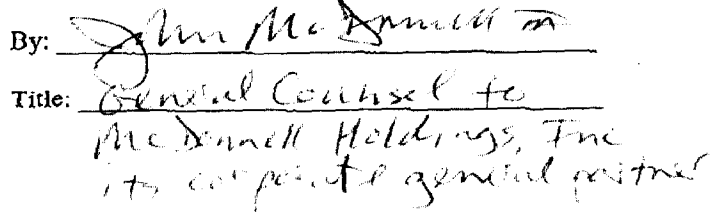 By: John McDonnell III
Title: General Counsel to
McDonnell Holdings, Inc
its corporate general partner